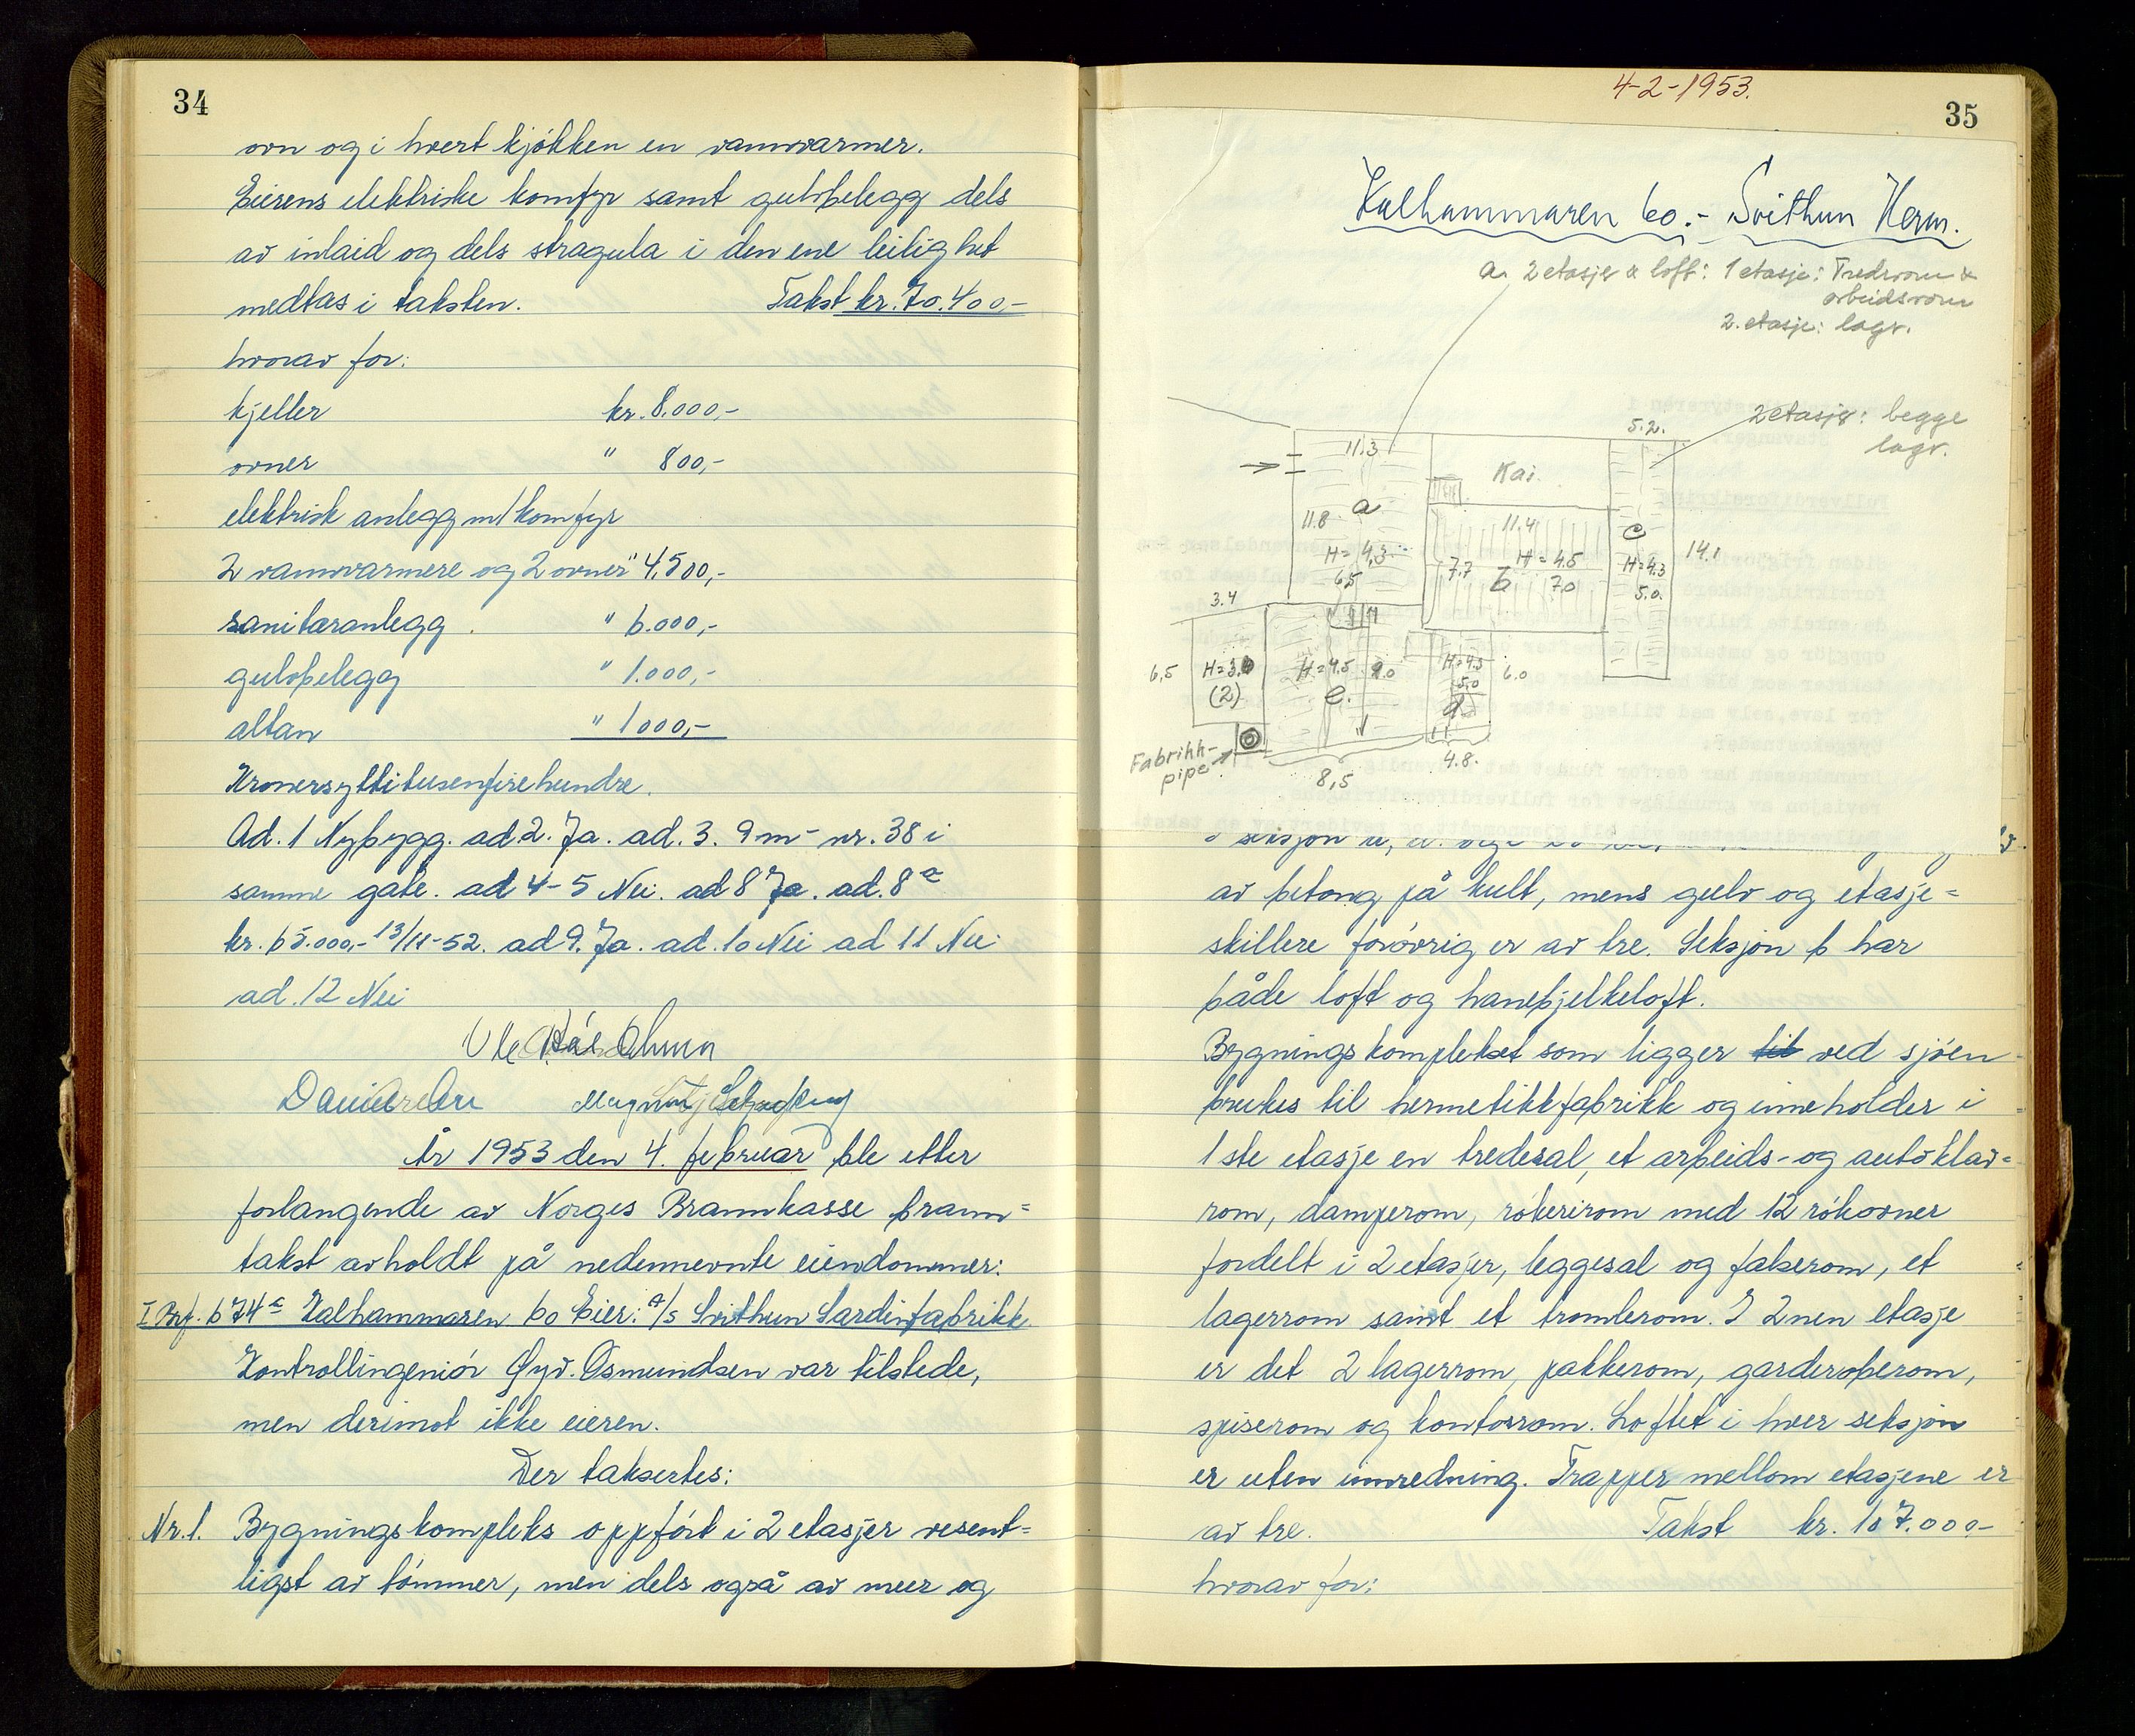 34
ovn og i hvert kjøkken en vannvarmer.
Eierens elektriske komfyr samt gulvbelegg dels
av inlaid og dels stragula i den ene leilighet
medtas i taksten. Takst kr. 70.400,-
hvorav for:
kjeller kr. 8.000,-
ovner " 800,-
elektrisk anlegg m/komfyr
2 vannvarmere og 2 ovner " 4.500,-
sanitæranlegg. " 6.000,-
gulvbelegg " 1.000,-
altan " 1000,-
Kronersyttitusenfirehundre.
Ad. 1 Nybygg. ad 2. Ja. ad. 3. 9 m - nr. 38 i
samme gate. ad 4-5 Nei. ad 8 Ja. ad. 8a
kr. 65.000,- 13/11-52. ad 9. Ja. ad. 10 Nei ad 11 Nei
ad. 12 Nei
År 1953 den 4. februar ble etter
forlangende av Norges Brannkasse brann=
takst avholdt på nedennevnte eiendommer:
I Brf. 674a Kalhammaren 60 Eier: A/S Svithun Sardinfabrikk
Kontrollingeniør Øyv. Osmundsen var tilstede,
men derimot ikke eieren.
Der taksertes:
Nr. 1. Bygningskompleks oppført i 2 etasjer vesent=
ligst av tømmer, men dels også av mur og
4-2-1953.
35
Kalhammaren 60.- Svithun Herm.
a. 2 etasjer & loft: 1 etasje: Trederom &
arbeidsrom
2. etasje: lagr.
2 etasjer: begge
lagr.
5.2.
11.3
Kai
11.8 a
11.4
c
H= 4,3
6,5
7.7 H= 4.5
b 7.0
H=4.3
5.0.
14.1
3.4
6,5
H=3.0
(2)
H=4.5 9.0
e.
H=4.3
5.0
d
6.0
Fabrikk-
pipe
8,5
4.8.
av betong på kult, mens gulv og etasje=
skillere forøvrig er av tre. Seksjon b har
både loft og hanebjelkeloft.
Bygningskomplekset som ligger til ved sjøen
brukes til hermetikkfabrikk og inneholder i
1ste etasje en tredesal, et arbeids- og autoklav=
rom, damperom, røkerirom med 12 røkovner
fordelt i 2 etasjer, leggesal og falserom, et
lagerrom samt et tromlerom. I 2nen etasje
er det 2 lagerrom, pakkerom, garderoberom,
spiserom og kontorrom. Loftet i hver seksjon
er uten innredning. Trapper mellom etasjene er
av tre. Takst kr. 107.000-
hvorav for: